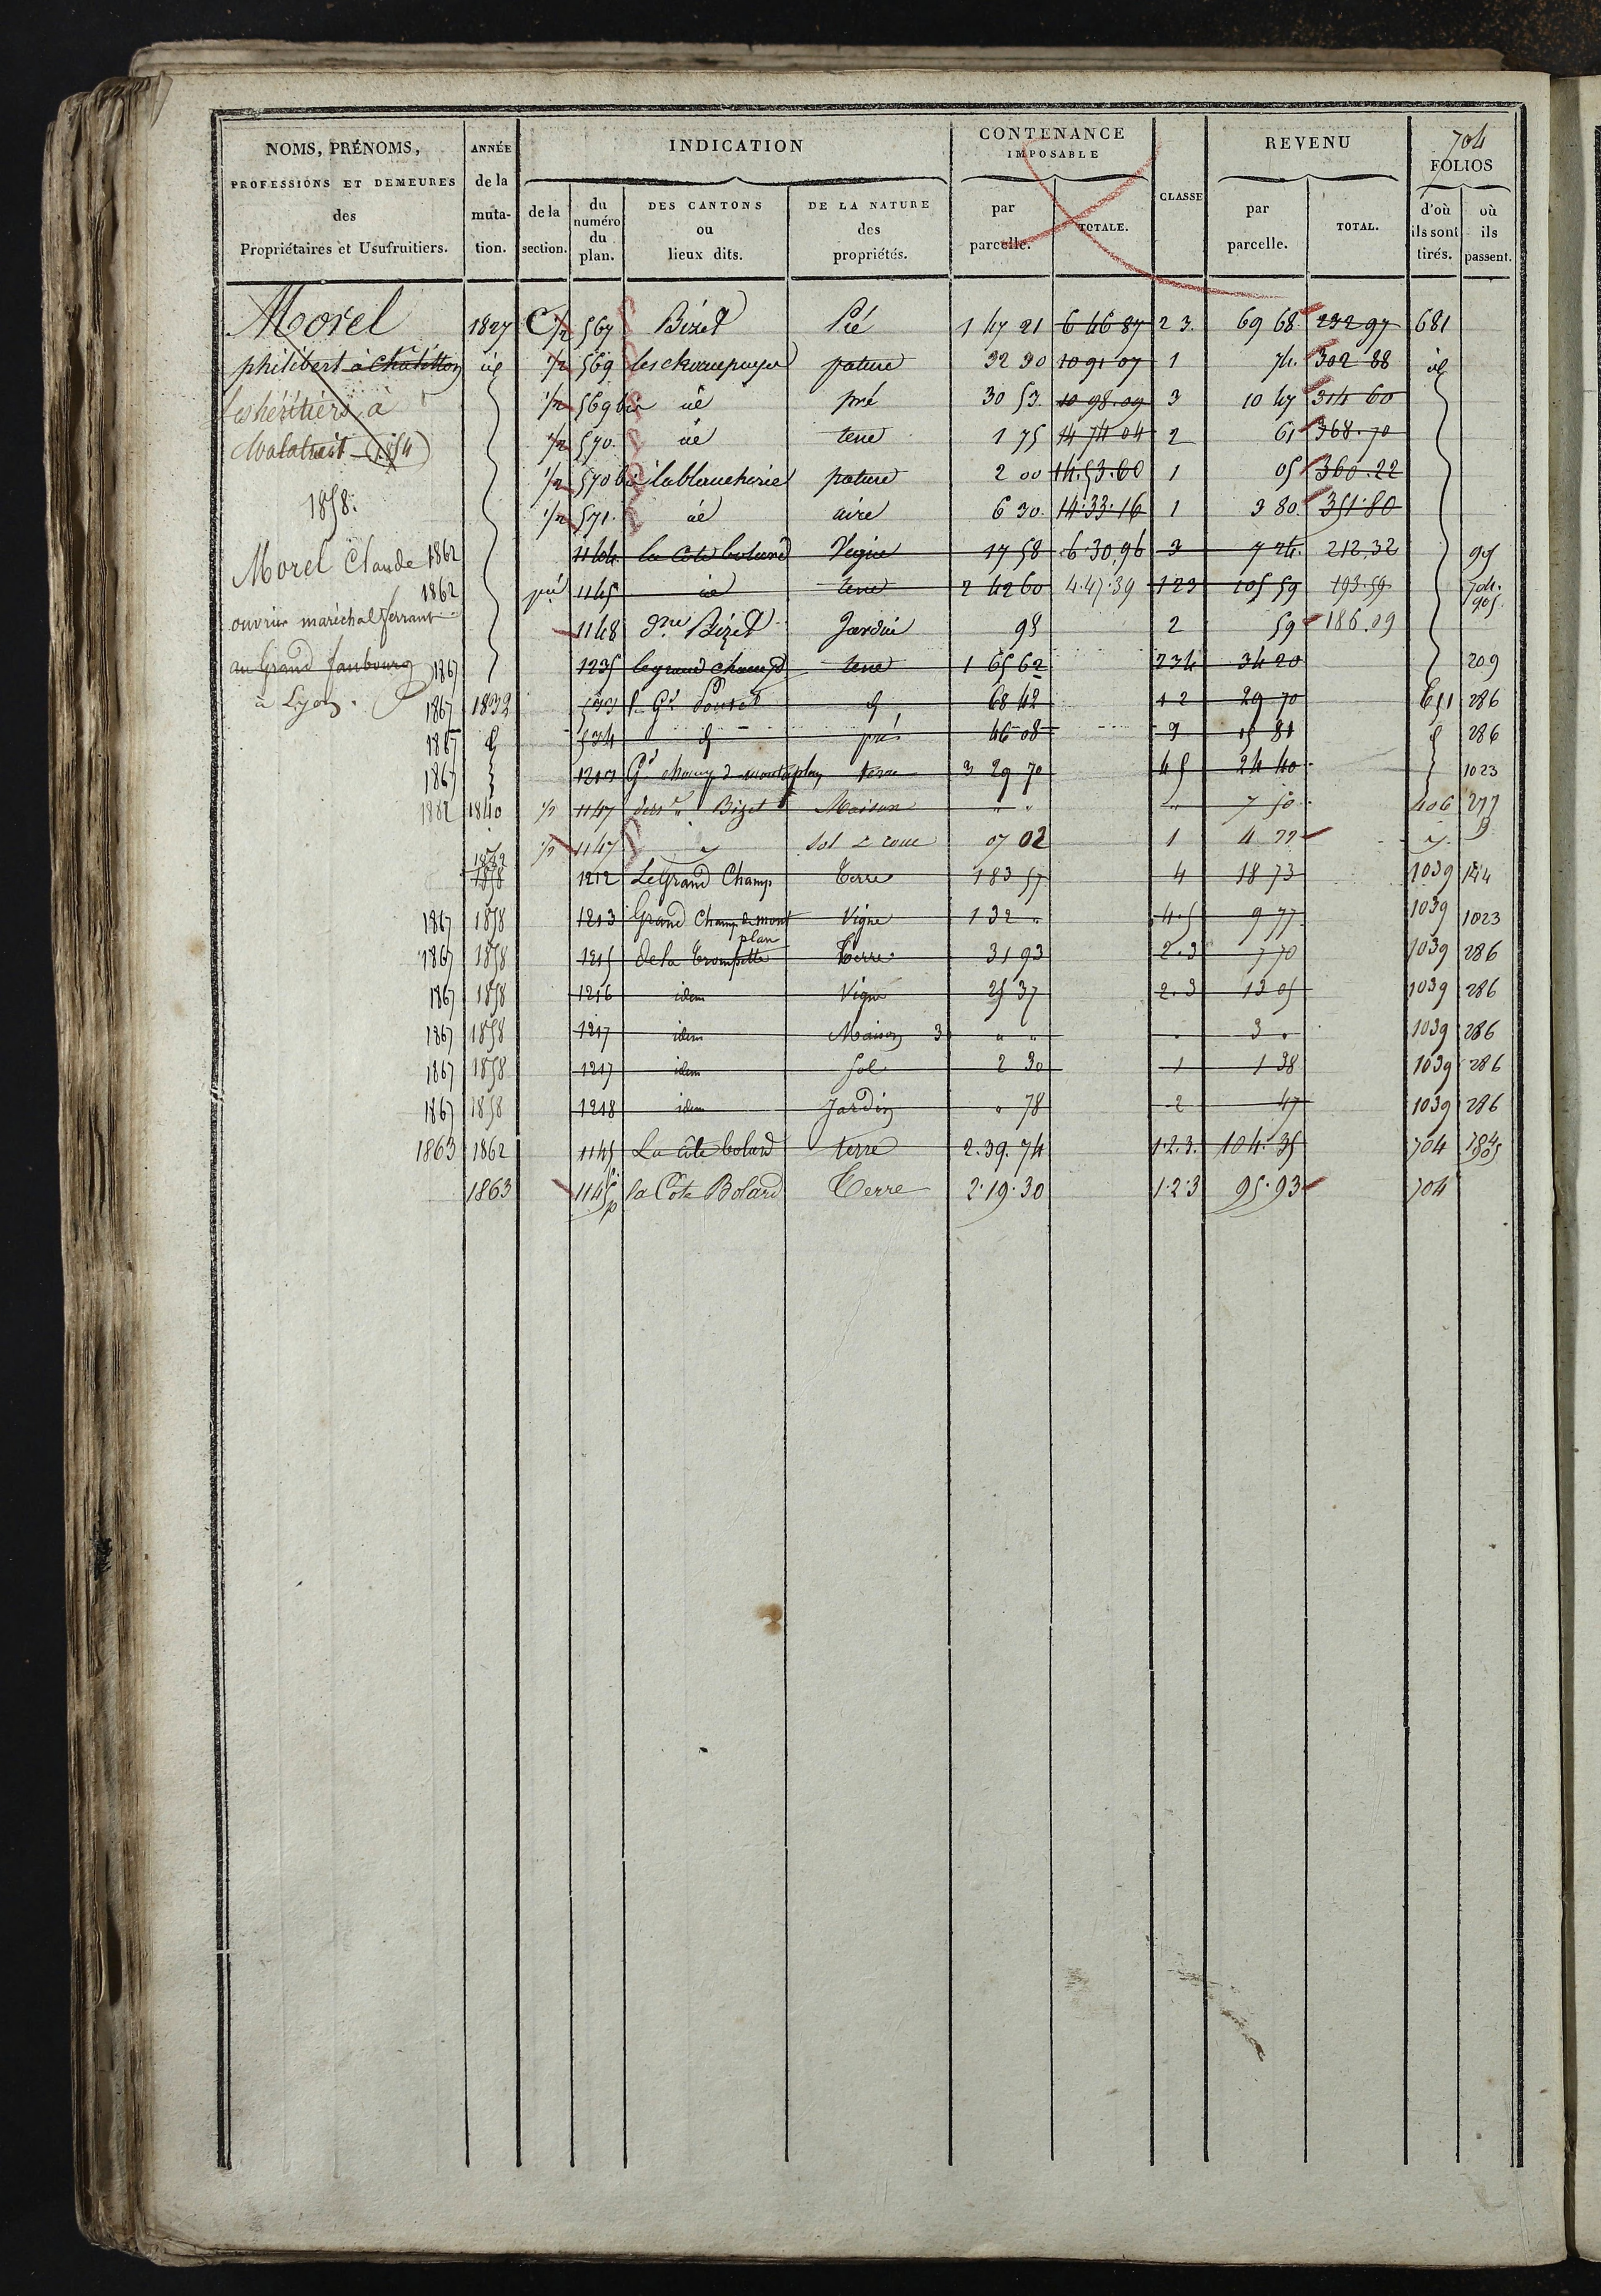 704
NOMS, PRÉNOMS, PROFESSIONS ET DEMEURES des Propriétaires et Usufruitiers.
ANNÉE de la muta-tion.
INDICATION
de la section.
du numéro du plan.
DES CANTONS ou lieux dits.
DE LA NATURE des propriétés.
CONTENANCE IMPOSABLE
par parcelle.
TOTALE.
CLASSE
REVENU
par parcelle.
TOTAL.
FOLIOS
d'où ils sont tirés.
où ils passent.
Morel 1827 C 1/2 567 Bizet Pré 1 47 21 6 46 87 2 3. 69 68 232 97 681
philibert à Châtillon id 1/2 569 pature 32 30 10 91 07 1 74. 302 88 id
les héritiers à 1/2 569 bis id pré 30 53. 10 98.09 3 10 47 314 60
(1854) 1/2 570. id terre 1 75 14 74 04 2 61 368.70
1/2 570 bis la blancherie pature 2 00 14.53.60 1 05 360.22
1858. 1/2 571. id aire 6 30. 14.33.16 1 3 80. 351.80
Morel Claude 1862 1144. la Cote bolard Vigne 17 58 6.30.96 3 7 24. 212.32
1862 1145 id terre 2 42 60 4.47.39 123 105 59 193.59 704. 905.
ouvrier maréchal ferrant 1148 Bizet Jardin 98 2 59 186.09
au Grand faubourg 1867 1235 le grand champ terre 1 65 62 234 34 20 209
à Lyon. 1867 1832 533 68 42 1 2 29 70 286
1867 534 pré 46 08 286
1867 3 29 70 45 24 40 1023
1882 1840 1/2 1147 Bizet Maison " " " 7 50 406 277
1/2 1147 Sol & cour 07 02 1 4 22
1858 1212 Le Grand Champ Terre 1 83 57 4 18 73 1039
1867 1858 1213 Grand Champ de mont plan Vigne 1 32 " 4.5 9 77 1039 1023
1867 1858 1215 de la Trompette Terre 31 93 2.3 7 70 1039 286
1867 1858 1216 idem Vigne 25 37 2.3 13 05 1039 286
1867 1858 1217 idem Maison 3 " " " 3 " 1039 286
1867 1858 1217 idem Sol 2 30 1 1 38 1039 286
1867 1858 1218 idem Jardin " 78 2 47 1039 286
1863 1862 1145 La Côte bolard terre 2.39.74 1.2.3. 104.35 704
1863 1145 p la Cote Bolard Terre 2.19.30 1.2.3 95.93 704